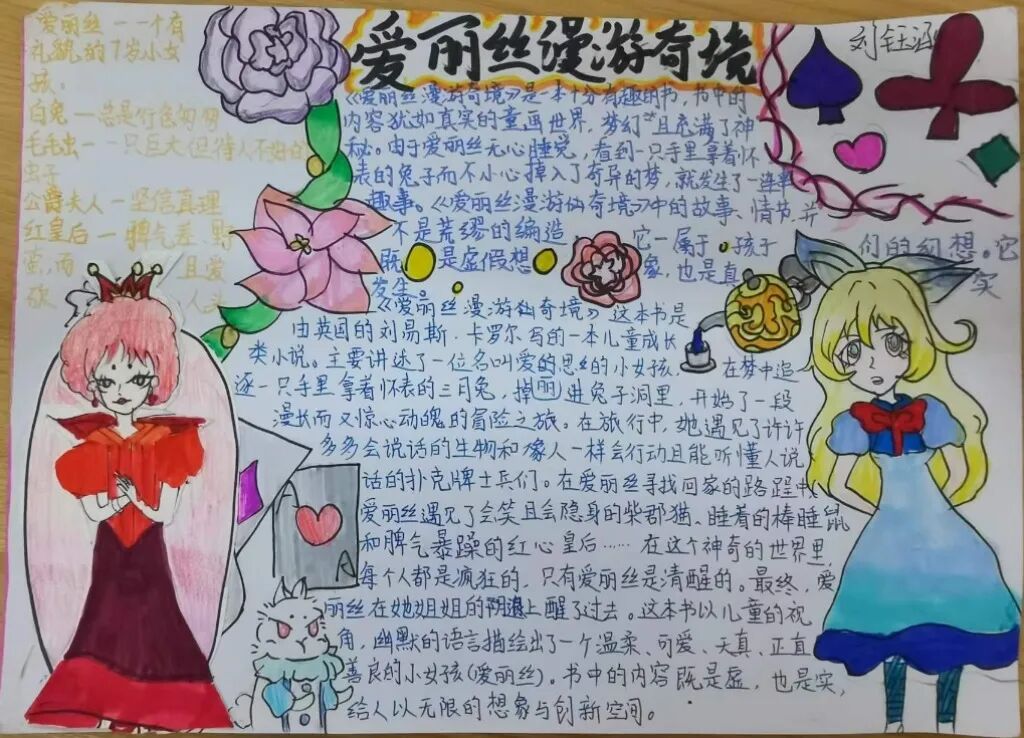 爱丽丝漫游奇境
刘钰涵
爱丽丝——一个有
礼貌的7岁小女
孩。
白兔—总是行色匆匆
毛毛虫——一只巨大(但待人不好的
虫子
公爵夫人—坚信真理
红皇后—脾气差、野
蛮,而且爱
砍人头
《爱丽丝漫游奇境》是一本十分有趣的书,书中的
内容犹如真实的童画世界,梦幻 且充满了神
秘。由于爱丽丝无心睡觉,看到一只手里拿着怀
表的兔子而不小心掉入了奇异的梦,就发生了一连串
趣事。《爱丽丝漫游仙奇境》中的故事、情节,并
不是荒缪的编造 它一属于 孩子 们的幻想。它
既 是虚假想 象,也是真 实
发生。
《爱丽丝漫游仙奇境》这本书是
由英国的刘易斯.卡罗尔写的一本儿童成长
类小说。主要讲述了一位名叫爱的思丝的小女孩 在梦中追
丽
逐一只手里拿着怀表的三月兔,掉进兔子洞里,开始了一段
漫长而又惊心动魄的冒险之旅。在旅行中,她遇见了许许
多多会说话的生物和橡人一样会行动且能听懂人说
话的扑克牌士兵们。在爱丽丝寻找回家的路程中,
爱丽丝遇见了会笑且会隐身的柴郡猫、睡着的棒睡鼠
和脾气暴躁的红心皇后……在这个神奇的世界里,
每个人都是疯狂的,只有爱丽丝是清醒的。最终,爱
丽丝在她姐姐的 上醒了过去。这本书以儿童的视
角,幽默的语言描绘出了一个温柔、可爱、天真、正直
善良的小女孩(爱丽丝)。书中的内容既是虚,也是实,
给人以无限的想象与创新空间。
A
A